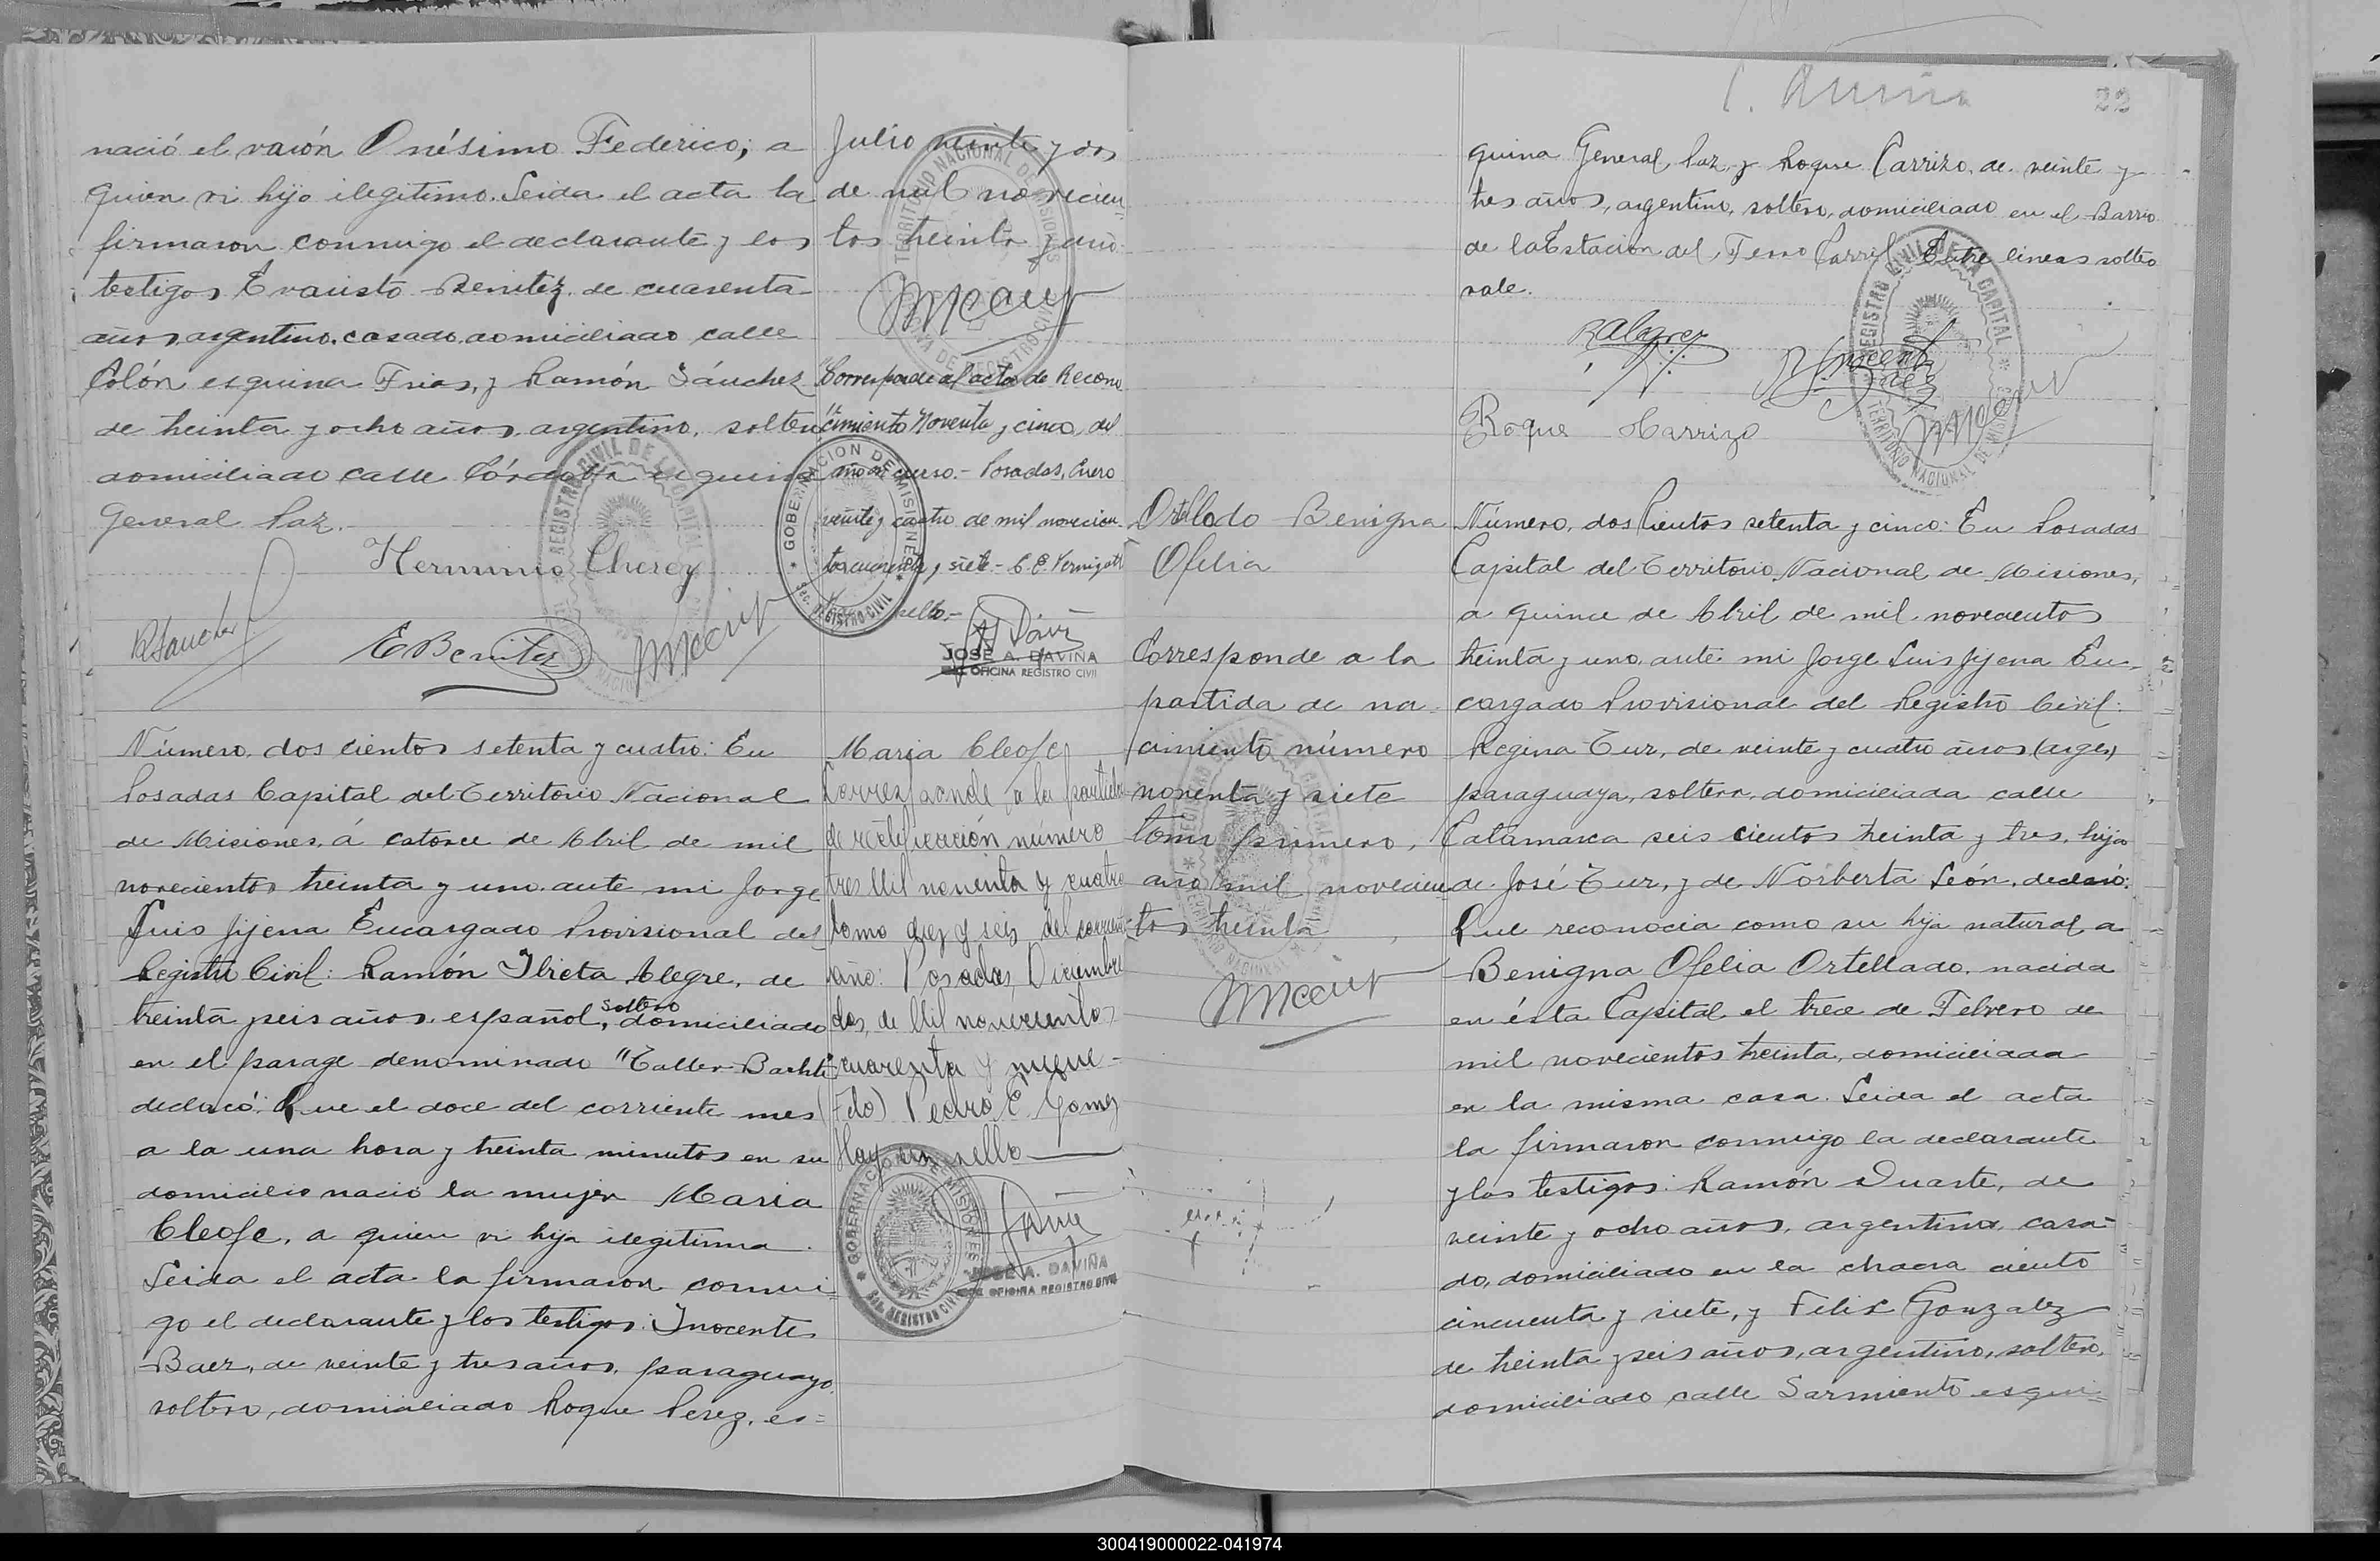 nació el varón Onésimo Federico; a
quien vi hijo ilegitimo. Leida el acta la
firmaron conmigo el declarante y los
testigos Evaristo Benitez, de cuarenta
años, argentino, casado, domiciliado calle
Colón esquina Frias, y Ramón Sánchez
de treinta y ocho años, argentino, soltero
domiciliado calle Córdoba esquina
General Paz.
Herminio Cherey
RSanchez
EBenitez
Número, dos cientos setenta y cuatro: En
Posadas Capital del Territorio Nacional
de Misiones, á catorce de Abril de mil
novecientos treinta y uno, ante mi Jorge
Luis Jijena Encargado Provisional del
Registro Civil: Ramón Alegre, de
treinta y seis años, español, soltero, domiciliado
en el parage denominado "Taller
declaró: Que el doce del corriente mes
a la una hora y treinta minutos en su
domicilio nació la mujer Maria
Cleofe, a quien vi hija ilegitima.
Leida el acta la firmaron conmi-
go el declarante y los testigos: Inocente
Baez, de veinte y tres años, paraguayo,
soltero, domiciliado Roque Perez, es=
Julio veinte y dos
de mil novecien-
tos treinta y uno.
Corresponde al acta de Recono
cimiento Noventa y cinco, del
año en curso.- Posadas, Enero
veinte y cuatro de mil novecien
tos cuarenta y siete.-
sello.-
JOSÉ A. DAVIÑA
OFICINA REGISTRO CIVIL
GOBERNACION DE MISIONES
REGISTRO CIVIL
Maria Cleofe
Corresponde a la partida
de rectificación número
tres Mil noventa y cuatro
tomo diez y seis del corriente
año: Posadas, Diciembre
dos, de Mil novecientos
cuarenta y nueve -
(Fdo) Pedro E. Gomez
Hay un sello
GOBERNACION DE MISIONES
REGISTRO CIVIL
JOSÉ A. DAVIÑA
OFICINA REGISTRO CIVIL
22
quina General Paz, y Roque Carrizo, de veinte y
tres años, argentino, soltero, domiciliado en el Barrio
de la Estación del Ferro Carril. Entre lineas soltero
vale.
RAlegre
Inocente Baez
Roque Carrizo
REGISTRO CIVIL DE LA CAPITAL
TERRITORIO NACIONAL DE MISIONES
Ortellado Benigna
Ofelia
Corresponde a la
partida de na-
cimiento número
noventa y siete
tomo primero,
año mil novecien-
tos treinta
Número, dos cientos setenta y cinco: En Posadas
Capital del Territorio Nacional de Misiones,
a quince de Abril de mil novecientos
treinta y uno, ante mi Jorge Luis Jijena En-
cargado Provisional del Registro Civil:
Regina Tur, de veinte y cuatro años (arge)
paraguaya, soltera, domiciliada calle
Catamarca seis cientos treinta y tres, hija
de José Tur, y de Norberta León, declaró:
Que reconocia como su hija natural a
Benigna Ofelia Ortellado, nacida
en ésta Capital el trece de Febrero de
mil novecientos treinta, domiciliada
en la misma casa. Leida el acta
la firmaron conmigo la declarante
y los testigos: Ramón Duarte, de
veinte y ocho años, argentino, casa-
do, domiciliado en la chacra ciento
cincuenta y siete, y Felix Gonzalez
de treinta y seis años, argentino, soltero,
domiciliado calle Sarmiento esqui=
300419000022-041974